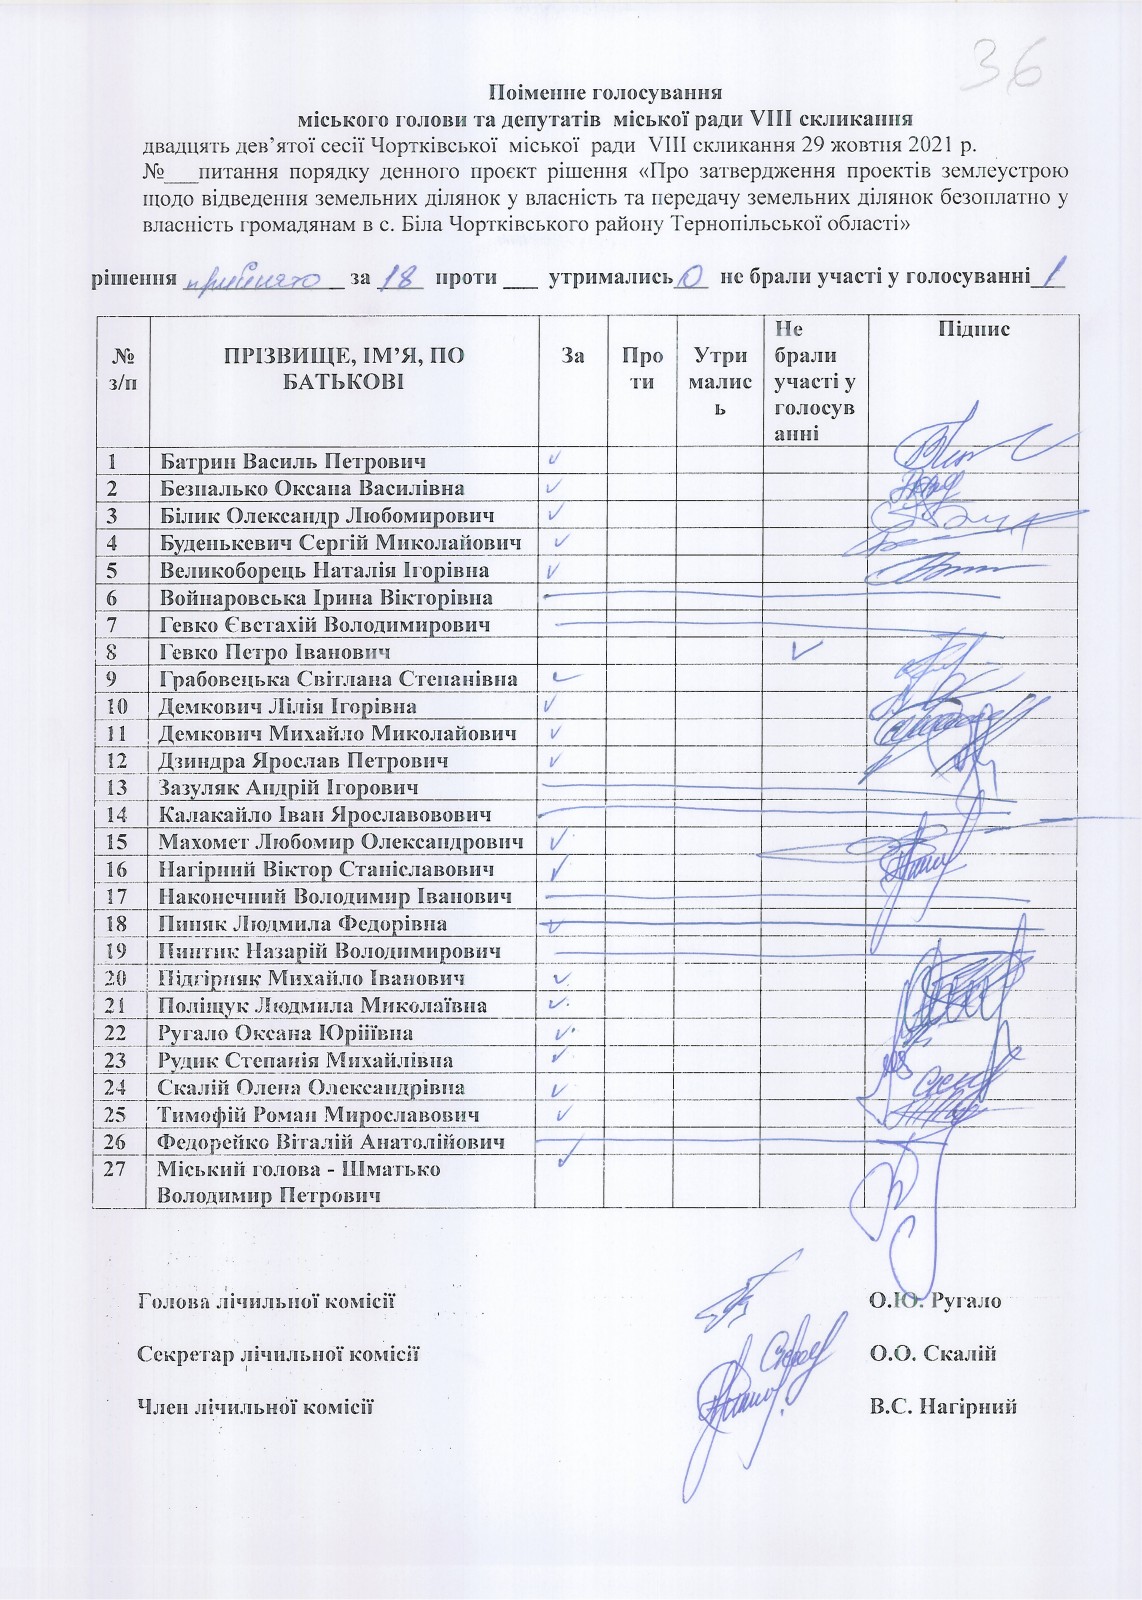 36
Поіменне голосування
міського голови та депутатів міської ради VIII скликання
двадцять дев’ятої сесії Чортківської міської ради VIII скликання 29 жовтня 2021 р.
№___питання порядку денного проєкт рішення «Про затвердження проектів землеустрою
щодо відведення земельних ділянок у власність та передачу земельних ділянок безоплатно у
власність громадянам в с. Біла Чортківського району Тернопільської області»
рішення прийнято за 18 проти ___ утримались 0 не брали участі у голосуванні 1
№ з/п ПРІЗВИЩЕ, ІМ’Я, ПО БАТ�ькові За Про ти Утри малис ь Не брали участі у голосув анні Підпис
1 Батрин Василь Петрович ✓
2 Безпалько Оксана Василівна ✓
3 Білик Олександр Любомирович ✓
4 Буденькевич Сергій Миколайович ✓
5 Великоборець Наталія Ігорівна ✓
6 Войнаровська Ірина Вікторівна
7 Гевко Євстахій Володимирович
8 Гевко Петро Іванович ✓
9 Грабовецька Світлана Степанівна ✓
10 Демкович Лілія Ігорівна ✓
11 Демкович Михайло Миколайович ✓
12 Дзиндра Ярослав Петрович ✓
13 Зазуляк Андрій Ігорович
14 Калакайло Іван Ярославовович
15 Махомет Любомир Олександрович ✓
16 Нагірний Віктор Станіславович ✓
17 Наконечний Володимир Іванович
18 Пиняк Людмила Федорівна ✓
19 Пинтик Назарій Володимирович
20 Підгірняк Михайло Іванович ✓
21 Поліщук Людмила Миколаївна ✓
22 Ругало Оксана Юріїївна ✓
23 Рудик Степанія Михайлівна ✓
24 Скалій Олена Олександрівна ✓
25 Тимофій Роман Мирославович ✓
26 Федорейко Віталій Анатолійович
27 Міський голова - Шматько ✓
Володимир Петрович
Голова лічильної комісії О.Ю. Ругало
Секретар лічильної комісії О.О. Скалій
Член лічильної комісії В.С. Нагірний